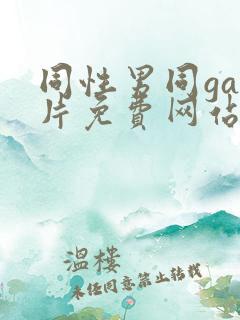 同性男同ga
片免费网佔
温楼
未经同意禁止转载